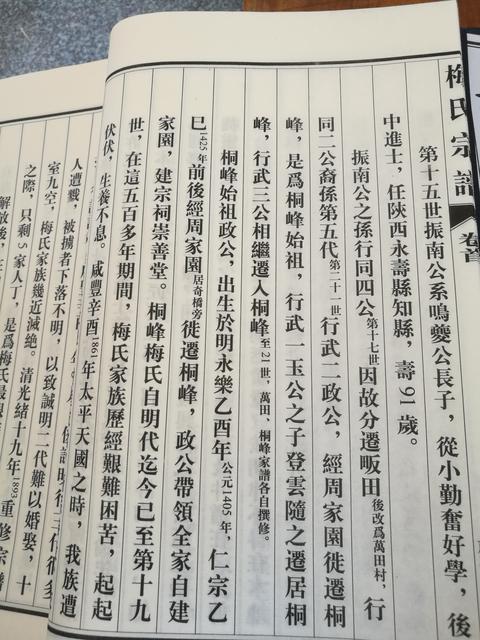 梅氏宗譜
卷首
第十五世振南公系鳴夔公長子，從小勤奮好學，後
中進士，任陝西永壽縣知縣，壽91歲。
振南公之孫行同四公第十七世因故分遷畈田後改爲萬田村，行
同二公裔孫第五代第二十一世行武二政公，經周家園徙遷桐
峰，是爲桐峰始祖，行武一玉公之子登雲隨之遷居桐
峰，行武三公相繼遷入桐峰至21世，萬田、桐峰家譜各自撰修。
桐峰始祖政公，出生於明永樂乙酉年公元1405年，仁宗乙
巳1425年前後經周家園居奇橋旁徙遷桐峰，政公帶領全家自建
家園，建宗祠崇善堂。桐峰梅氏自明代迄今已至第十九
世，在這五百多年期間，梅氏家族歷經艱難困苦，起起
伏伏，生養不息。咸豐辛酉1861年太平天國之時，我族遭
人遭戮，被擄者下落不明，以致誠明二代難以婚娶，十
室九空，梅氏家族幾近滅絕。清光緒十九年1893重修宗譜
之際，只剩5家人丁，是爲梅氏最
解放後，